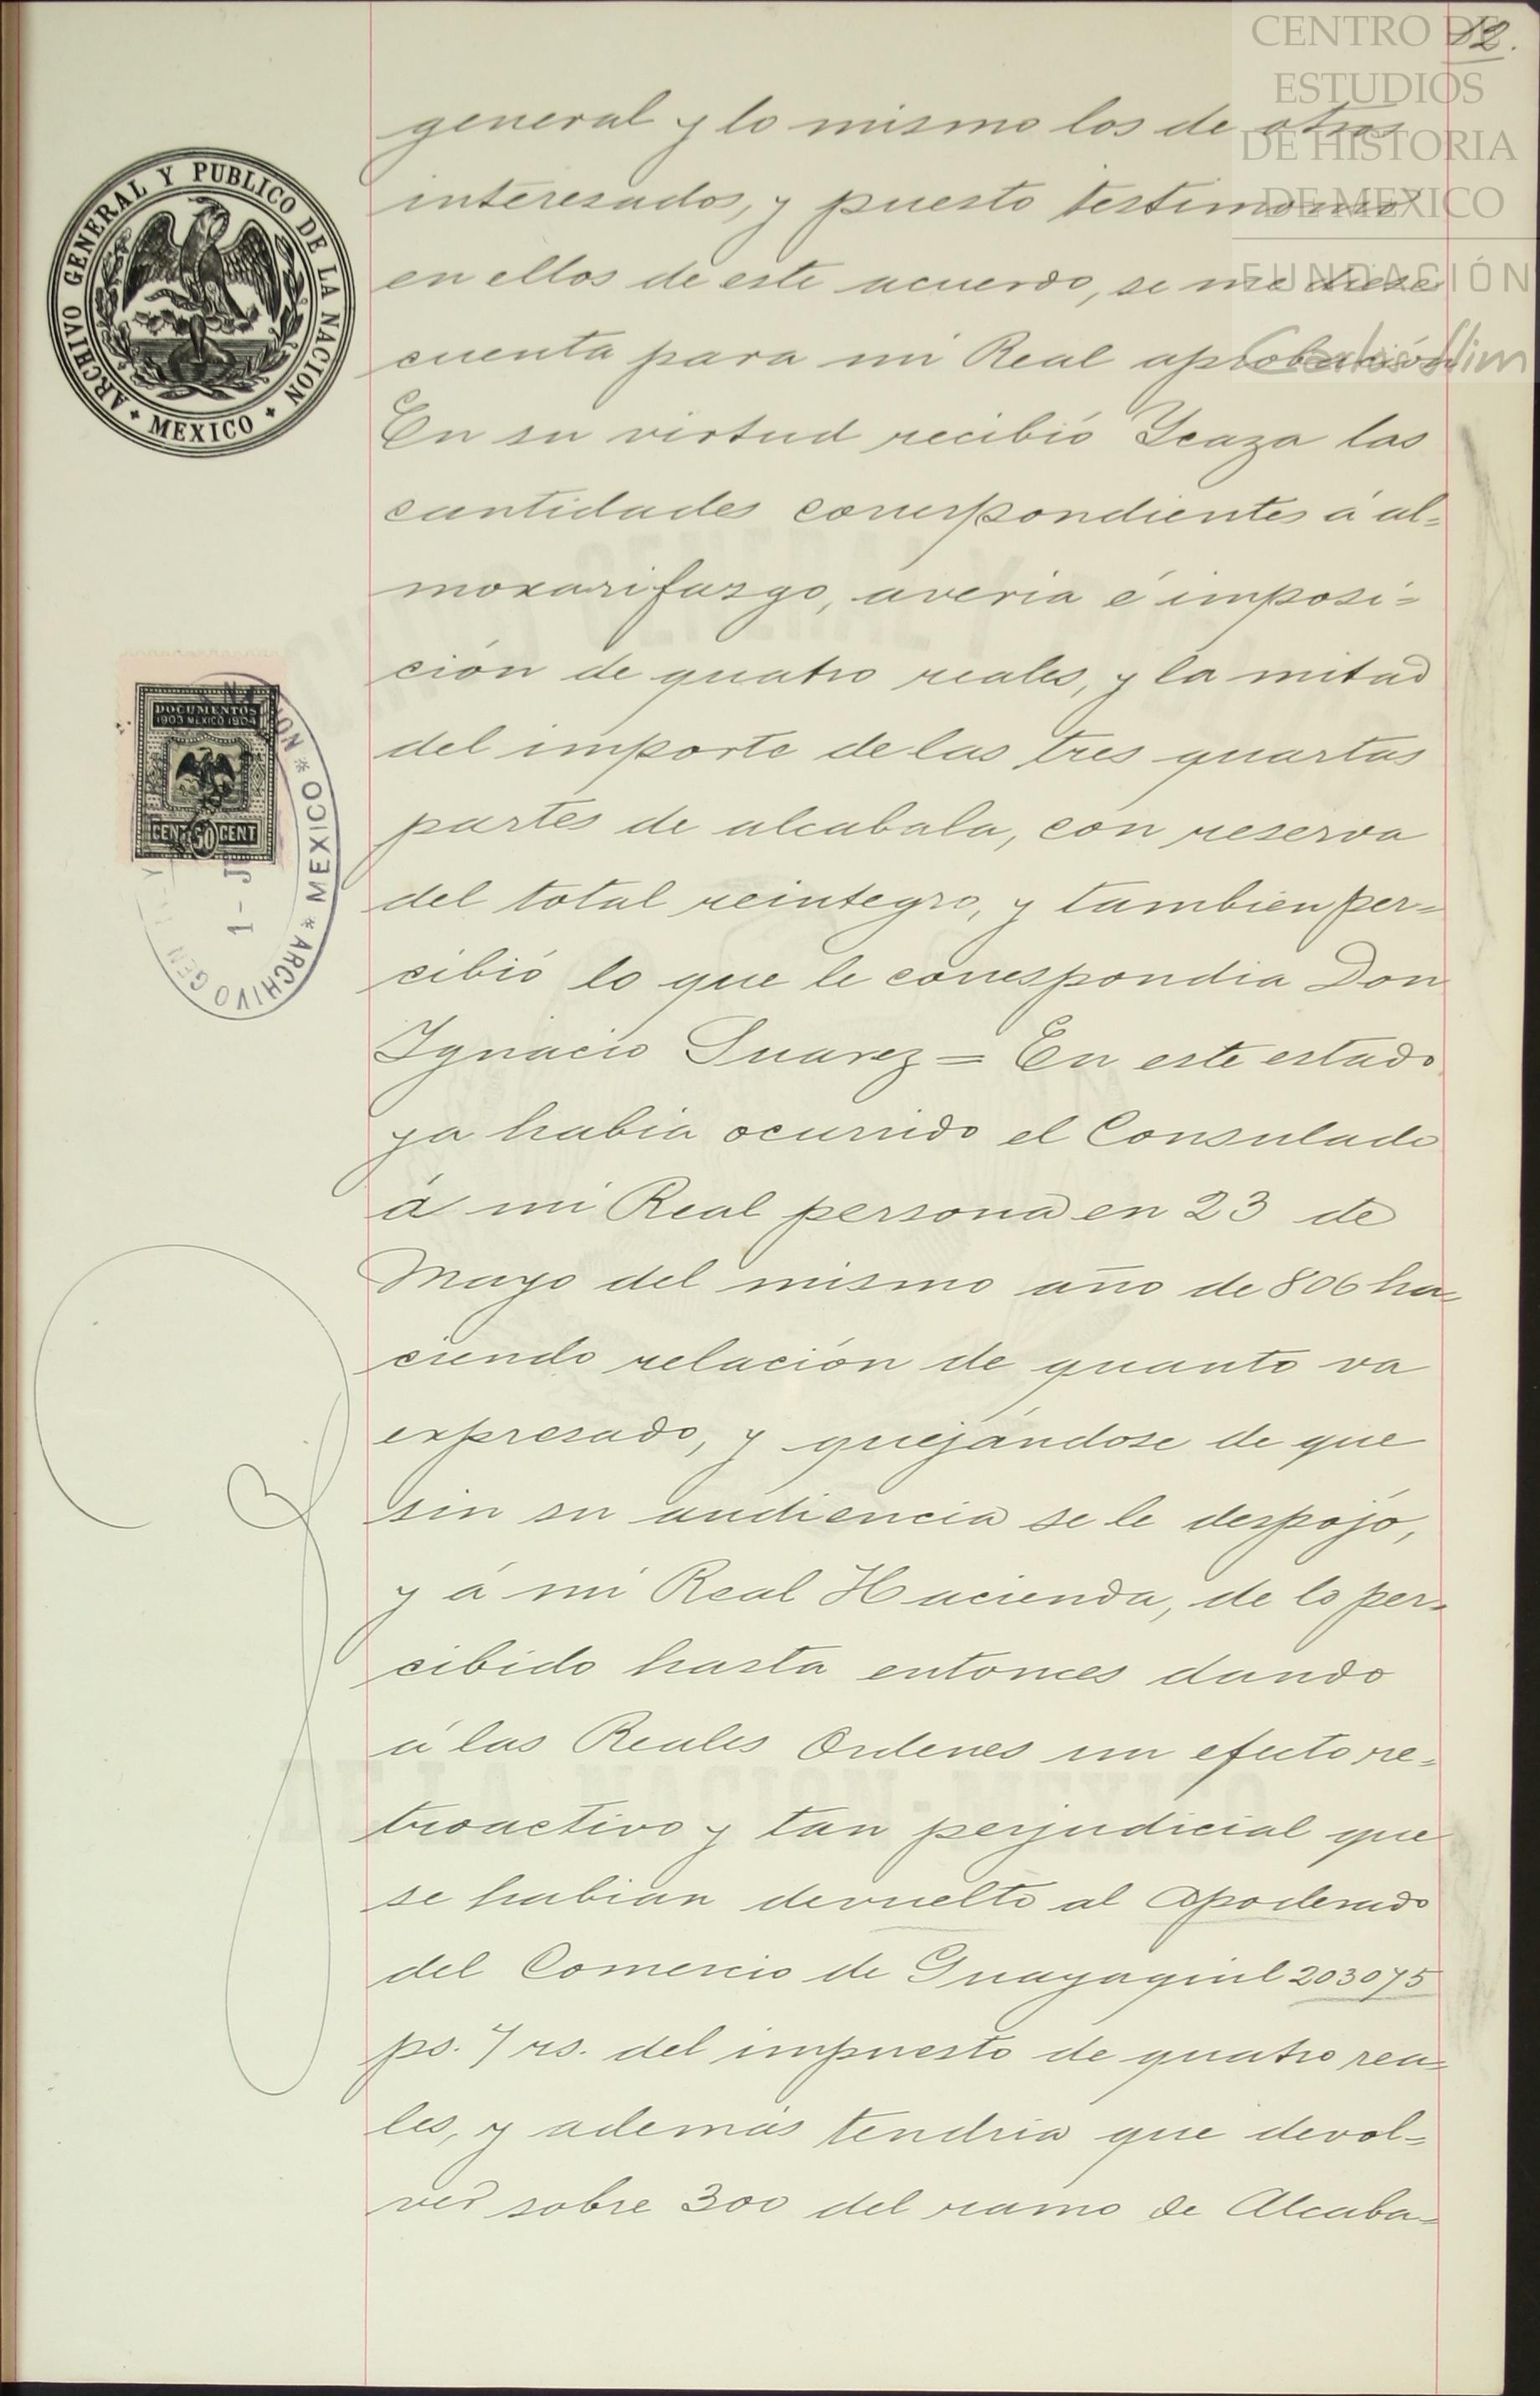 12.
CENTRO DE
ESTUDIOS
DE HISTORIA
DE MEXICO
FUNDACIÓN
Carlos Slim
ARCHIVO GENERAL Y PUBLICO DE LA NACION
MEXICO
DOCUMENTOS
1903 MEXICO 1904
CENT 50 CENT
MEXICO * ARCHIVO GEN
1 - J
general y lo mismo los de otros
interesados, y puesto testimonio
en ellos de este acuerdo, se me diese
cuenta para mi Real aprobación
En su virtud recibió Ycaza las
cantidades correspondientes á al=
moxarifazgo, averia é imposi=
ción de quatro reales, y la mitad
del importe de las tres quartas
partes de alcabala, con reserva
del total reintegro, y tambien per=
cibió lo que le correspondia Don
Ygnacio Suarez = En este estado
ya habia ocurrido el Consulado
á mi Real persona en 23 de
Mayo del mismo año de 806 ha=
ciendo relación de quanto va
expresado, y quejándose de que
sin su audiencia se le despojó,
y á mi Real Hacienda, de lo per=
cibido hasta entonces dando
á las Reales Ordenes un efecto re=
troactivo y tan perjudicial que
se habian devuelto al Apoderado
del Comercio de Guayaquil 203075
ps. 7 rs. del impuesto de quatro rea=
les, y además tendria que devol=
ver sobre 300 del ramo de Alcaba=